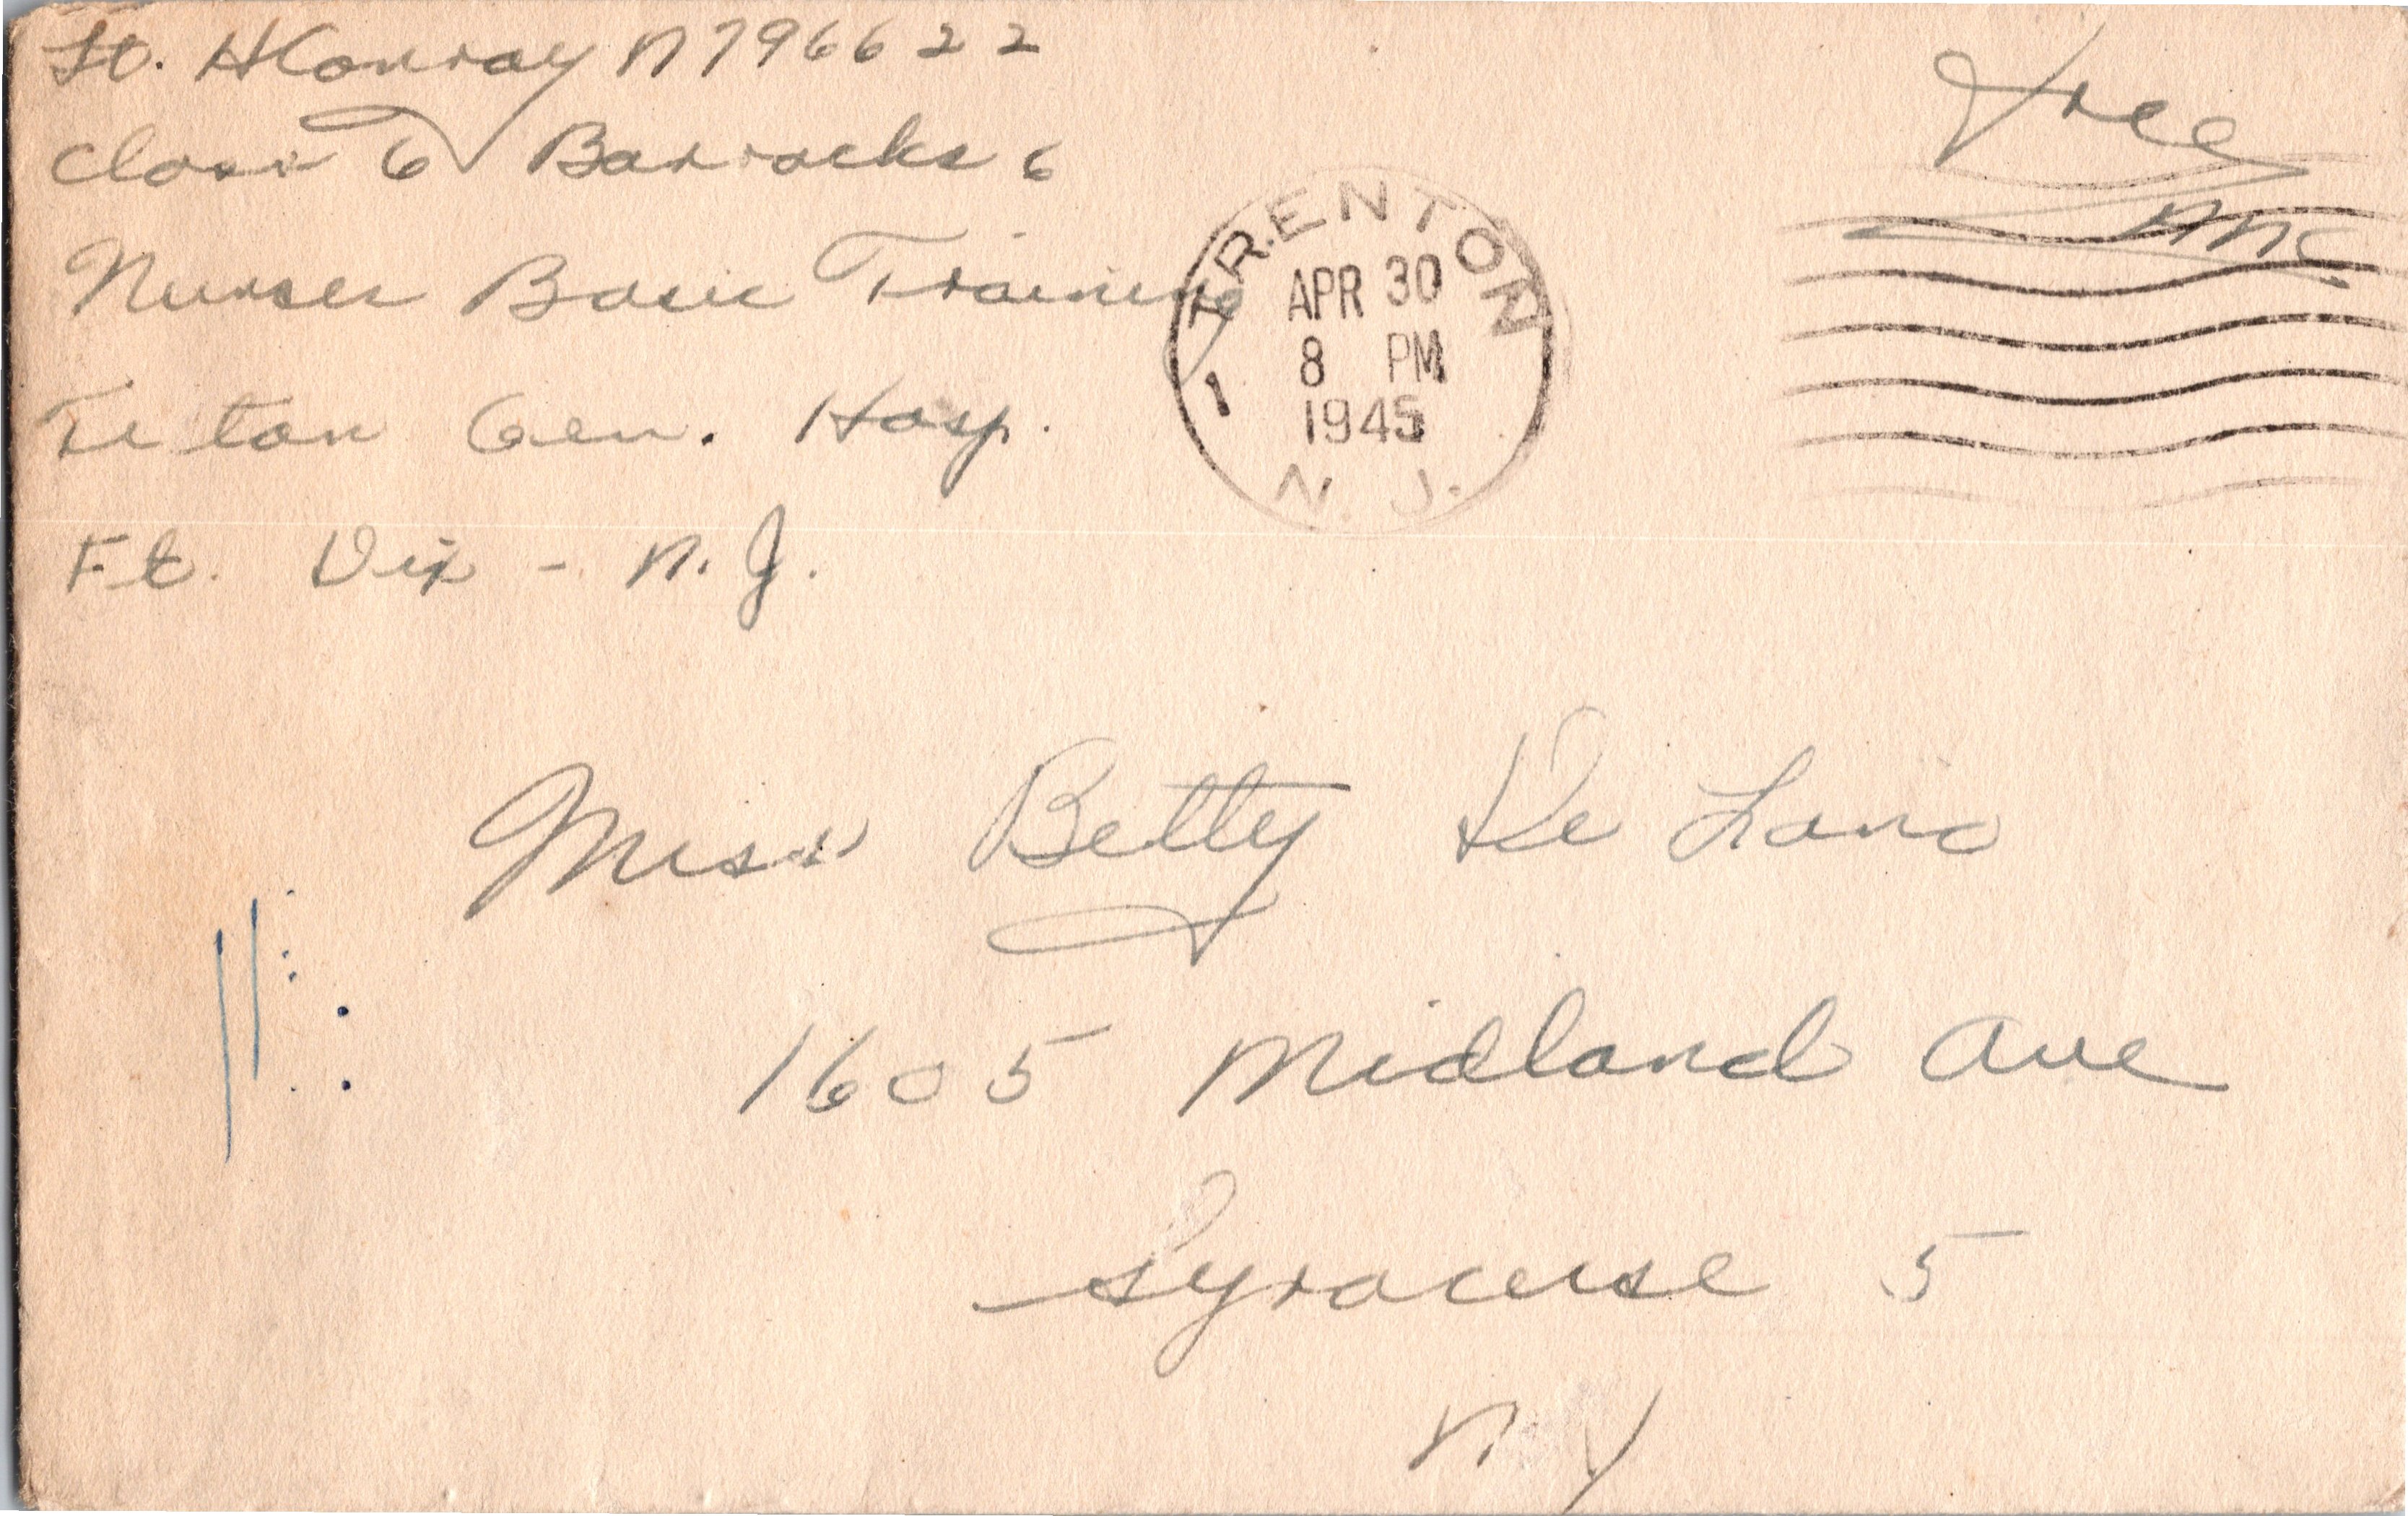 Lt. H Conway N796622
Class 6 Barracks 6
Nurses Basic Training
Tilton Gen. Hosp.
Ft. Dix - N.J.
Free
ANC.
TRENTON
1
APR 30
8 PM
1945
N. J.
Miss Betty De Lano
1605 Midland Ave
Syracuse 5
N Y